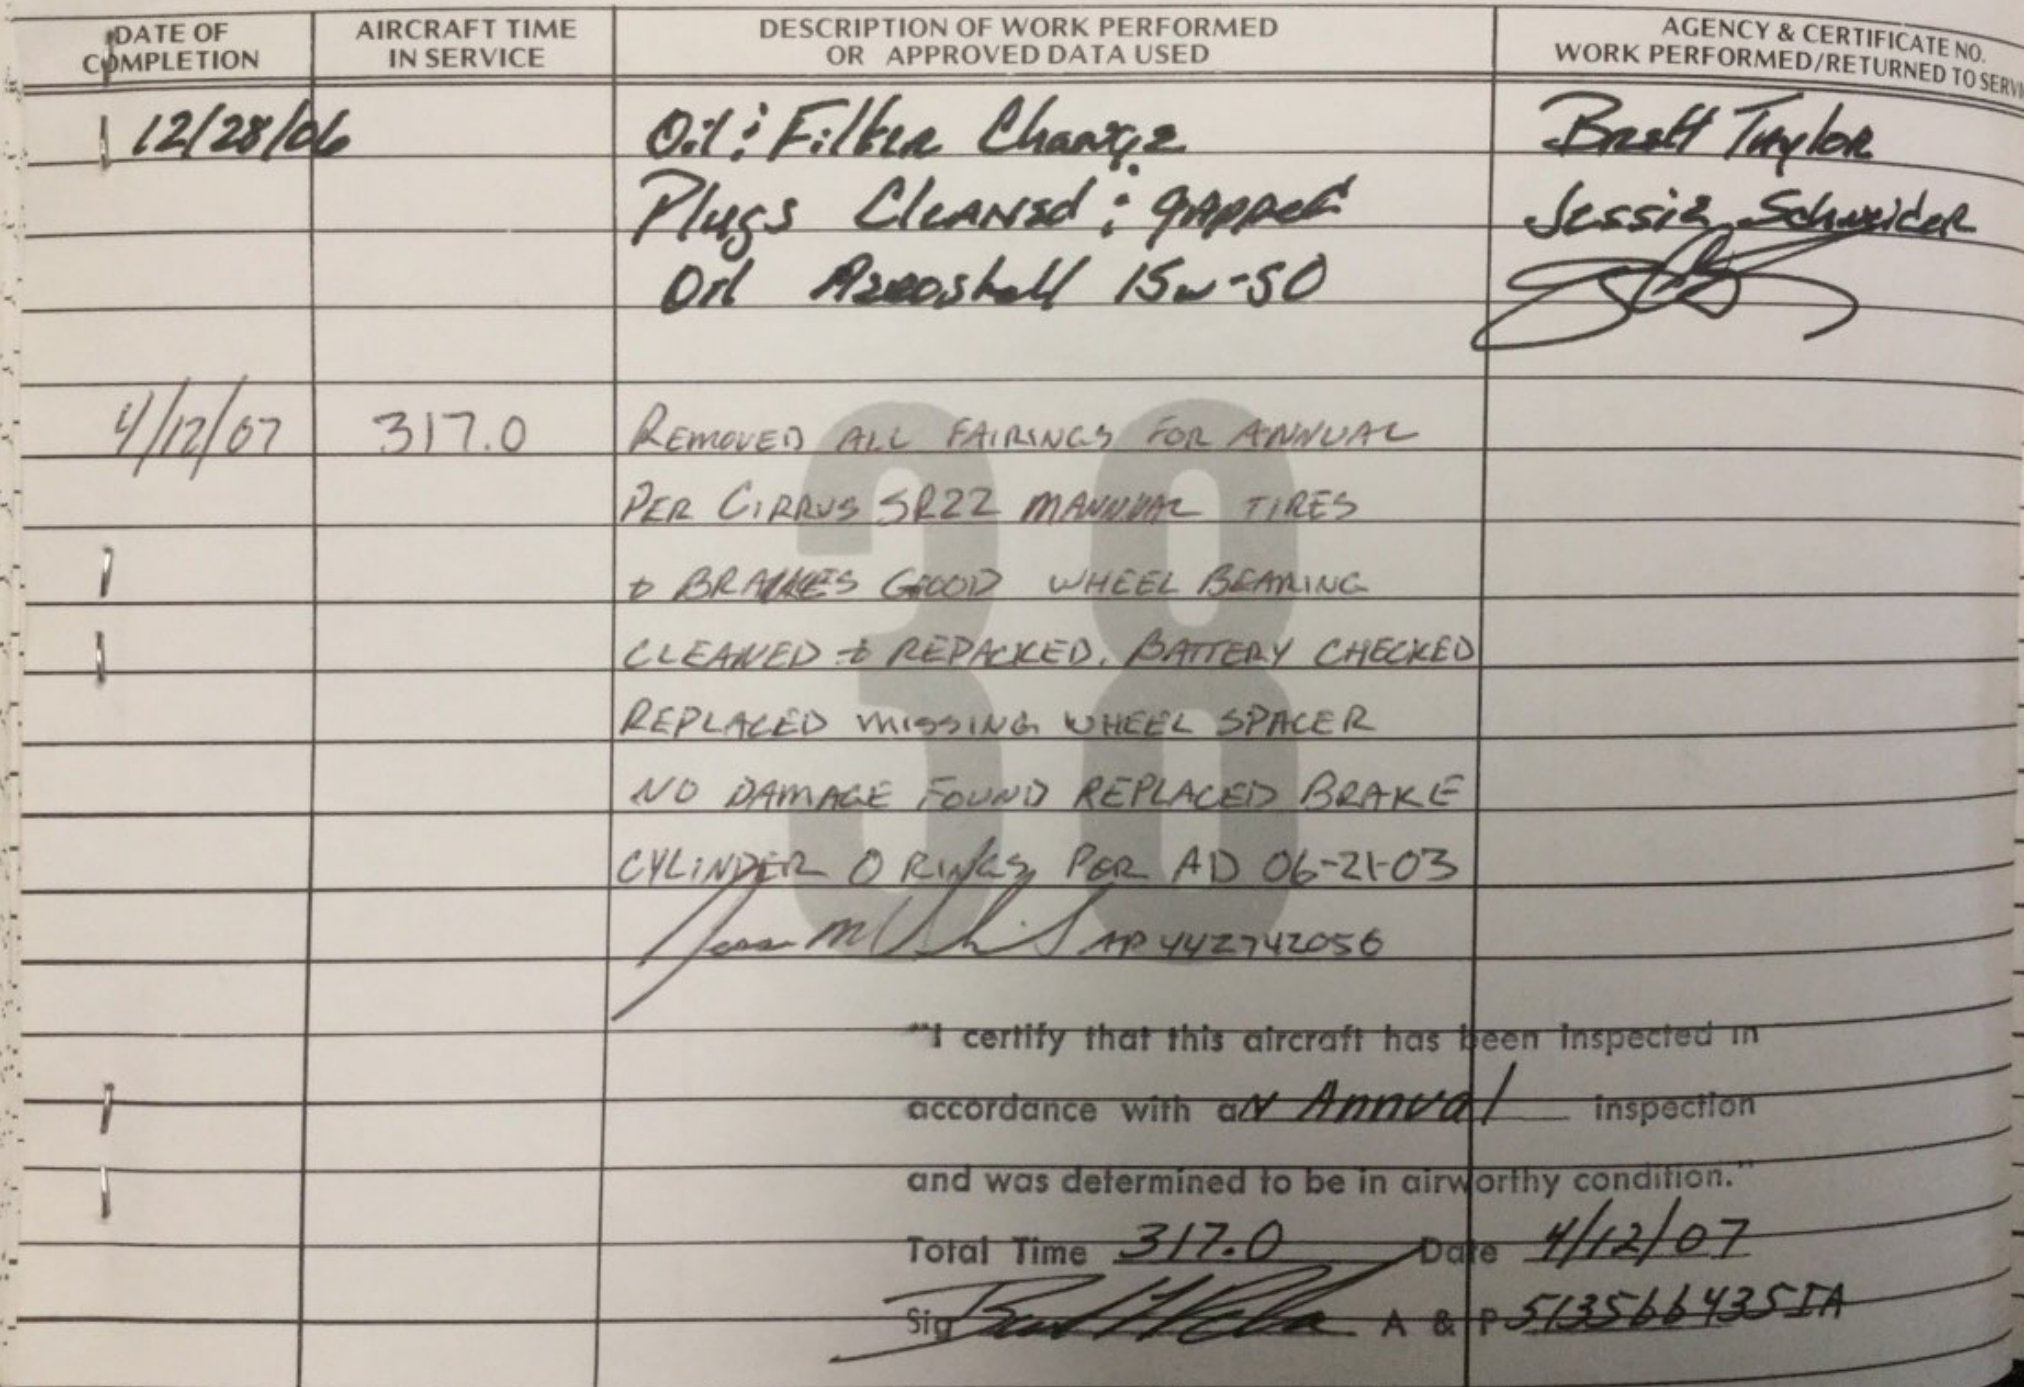 DATE OF COMPLETION
AIRCRAFT TIME IN SERVICE
DESCRIPTION OF WORK PERFORMED OR APPROVED DATA USED
AGENCY & CERTIFICATE NO.
WORK PERFORMED/RETURNED TO
12/28/06 Oil & Filter Change Brett Taylor
Plugs Cleaned & gapped Jessie Schneider
Oil Aeroshell 15w-50
38
4/12/07 317.0 REMOVED ALL FAIRINGS FOR ANNUAL
PER CIRRUS SR22 MANNUAL TIRES
& BRAKES GOOD WHEEL BEARING
CLEANED & REPACKED. BATTERY CHECKED
REPLACED MISSING WHEEL SPACER
NO DAMAGE FOUND REPLACED BRAKE
CYLINDER O RINGS PER AD 06-21-03
AP 442742056
"I certify that this aircraft has been inspected in
accordance with aN Annual inspection
and was determined to be in airworthy condition."
Total Time 317.0 Date 4/12/07
Sig A & P 513566435IA